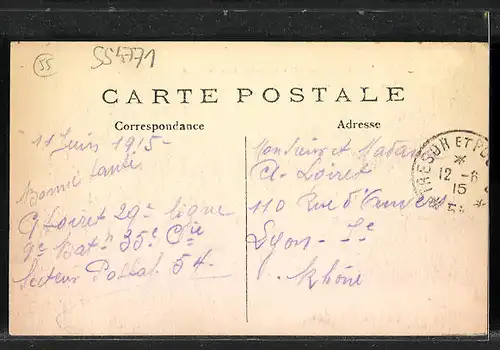 55
554771
CARTE POSTALE
Correspondance
Adresse
11 Juin 1915-
Bonne Santé
G Loiret 29e ligne
9e Batn 35e Cie
Secteur Postal 54-
Monsieur et Madame
Cl. Loiret
110 Rue d'Anvers
Lyon - 7e
Rhône
TRESOR ET POS
12 -6
15